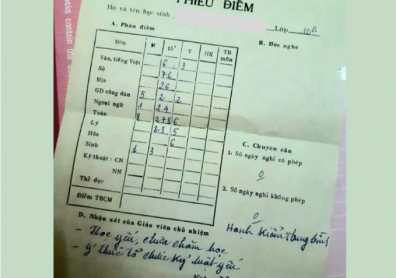 PHIẾU ĐIỂM
Họ và tên học sinh Lớp 10B
A. Phân điểm B. Học nghề
Môn M 15' V HK TB môn
Văn, tiếng Việt 6 3
Sử 7.6.1
Địa 2.6
GD công dân 5 2 2
Ngoại ngữ 1 2.4
Toán 8 2 7 8 6
Lý 3.3 5
Hóa 6
Sinh 3
Kỹ thuật : CN
NN
Thể dục
Điểm TBCM
C. Chuyên cần
1. Số ngày nghỉ có phép
0
2. Số ngày nghỉ không phép
0
Hạnh kiểm: Trung bình
D. Nhận xét của Giáo viên chủ nhiệm
- Học yếu, chưa chăm học
- ý thức tổ chức kỷ luật yếu